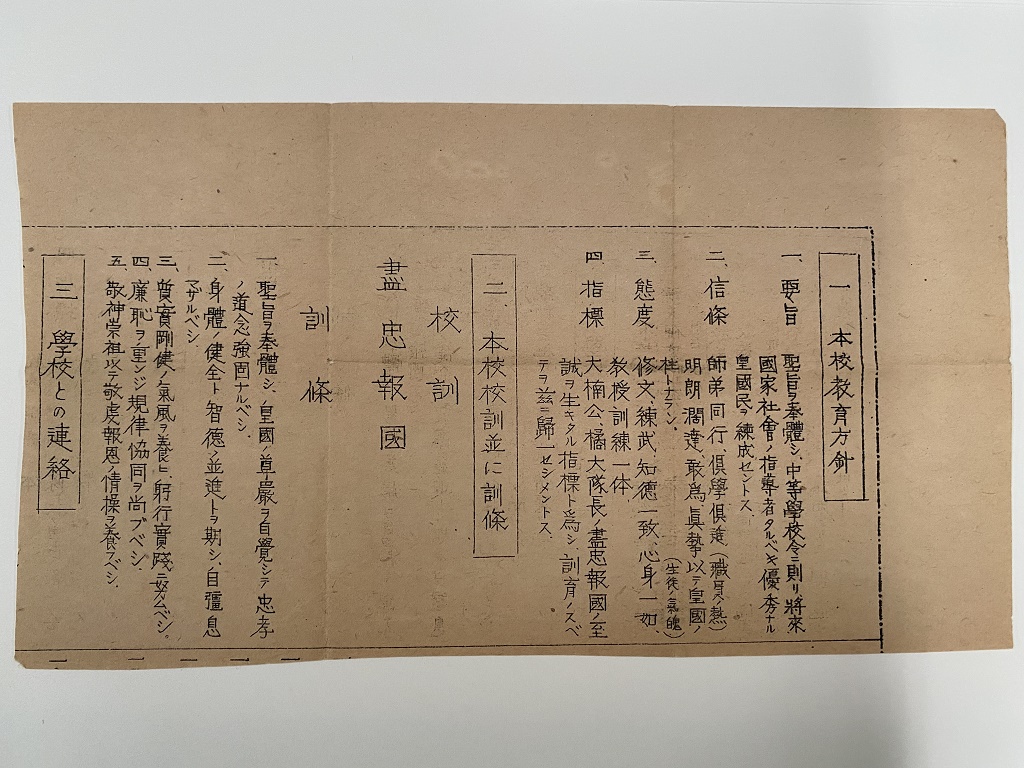 一 本校教育方針
一、要旨 聖旨ヲ奉體シ、中等學校令ニ則リ將來
國家社會ノ指導者タルベキ優秀ナル
皇國民ヲ練成セントス
二、信條 師弟同行、倶學倶進(職員ノ熱)
明朗濶達、敢爲眞摯以テ皇國ノ(生徒ノ氣魄)
柱トナラン。
三、態度 修文練武、知徳一致、心身一如、
教授訓練一体
四 指標 大楠公橘大隊長ノ盡忠報國ノ至
誠ヲ生キタル指標ト爲シ、訓育ノスベ
テヲ茲ニ歸一セシメントス、
二、本校校訓並に訓條
校訓
盡忠報國
訓條
一、聖旨ヲ奉體シ、皇國ノ尊嚴ヲ自覺シテ忠孝
ノ道念強固ナルベシ、
二、身體ノ健全ト智德ノ並進トヲ期シ、自彊息
マザルベシ
三、質實剛健ノ氣風ヲ養ヒ、躬行實踐ニ努ムベシ。
四、廉恥ヲ重ンジ規律協同ヲ尚ブベシ
五、敬神崇祖以テ敬虔報恩ノ情操ヲ養スベシ、
三 學校との連絡